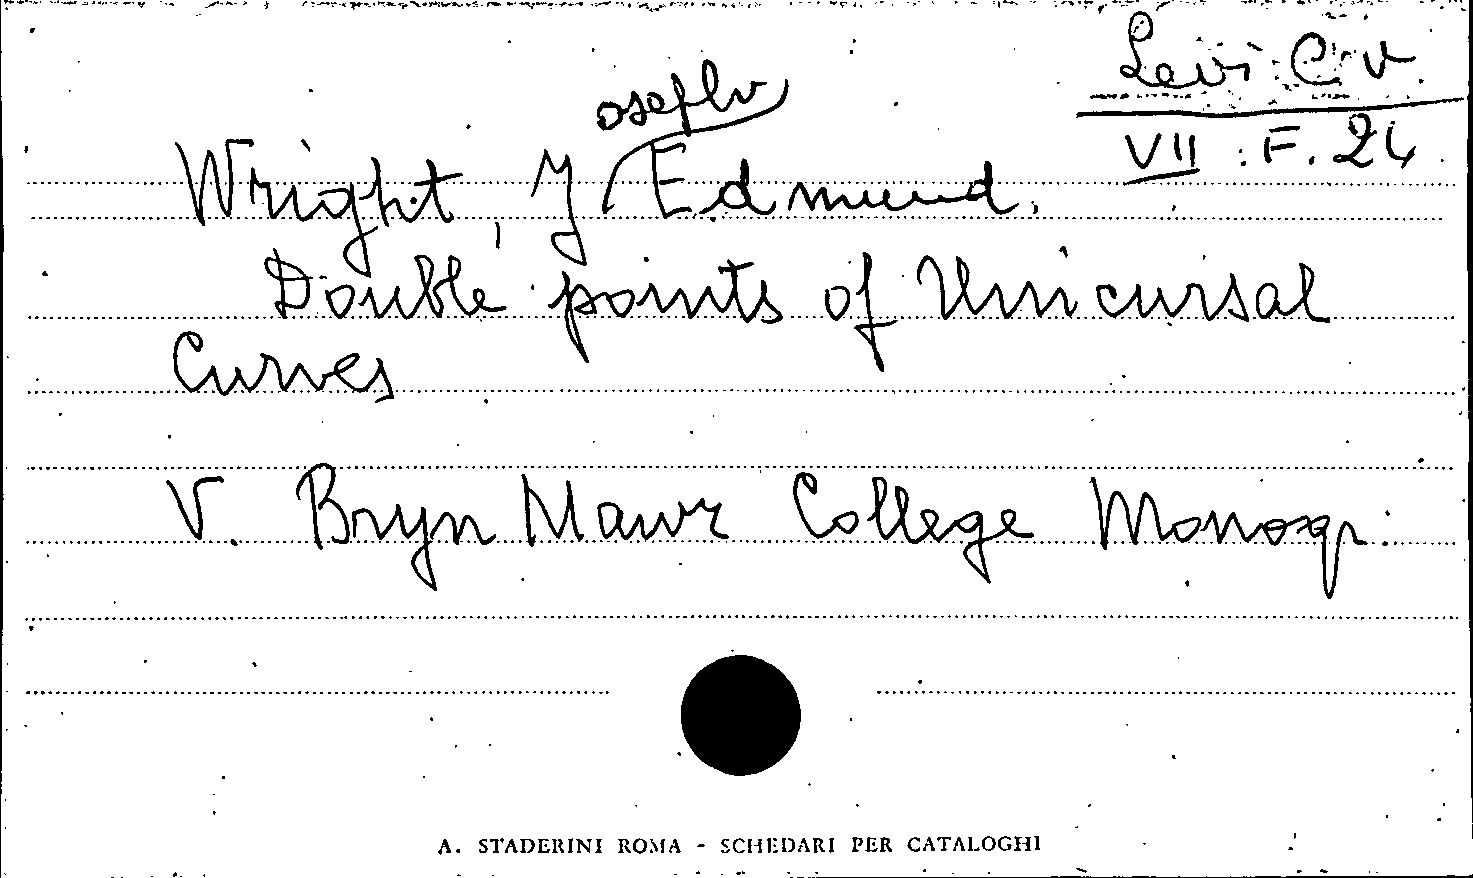 Levi C V.
VII : F. 24
Wright, Joseph Edmund.
Double points of Unicursal
Curves
V. Bryn Mawr College Monogr.
A. STADERINI ROMA - SCHEDARI PER CATALOGHI